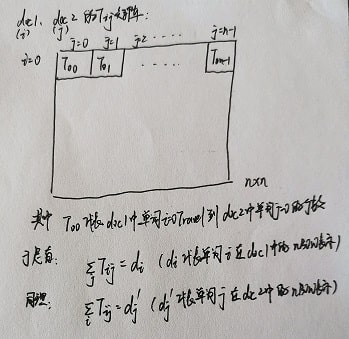 doc1, doc2 的Tij矩阵:
(i) (j)
j=0 j=1 j=2 ...... j=n-1
i=0 T00 T01 ...... T0n-1
n×n
其中 T00 代表doc1中单词i=0 Travel 到 doc2中单词j=0的
于是有: ∑j Tij = di (di代表单词 i 在doc1中的 nBOW表示)
同理: ∑i Tij = dj' (dj'代表单词 j 在 doc2 中的 nBOW表示)